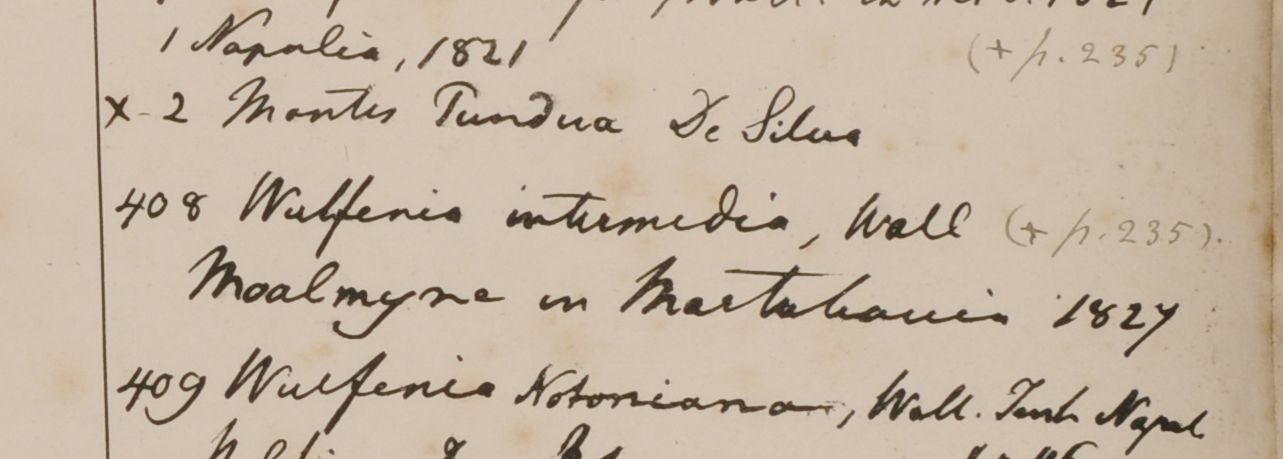 1 Napalia, 1821 (+ p. 235)
x-2 Montis Tundua De Silva
408 Wulfenia intermedia, Wall (+ p. 235).
Moalmyne in Martabania 1827
409 Wulfenia Notoniana, Wall. Tent Napal